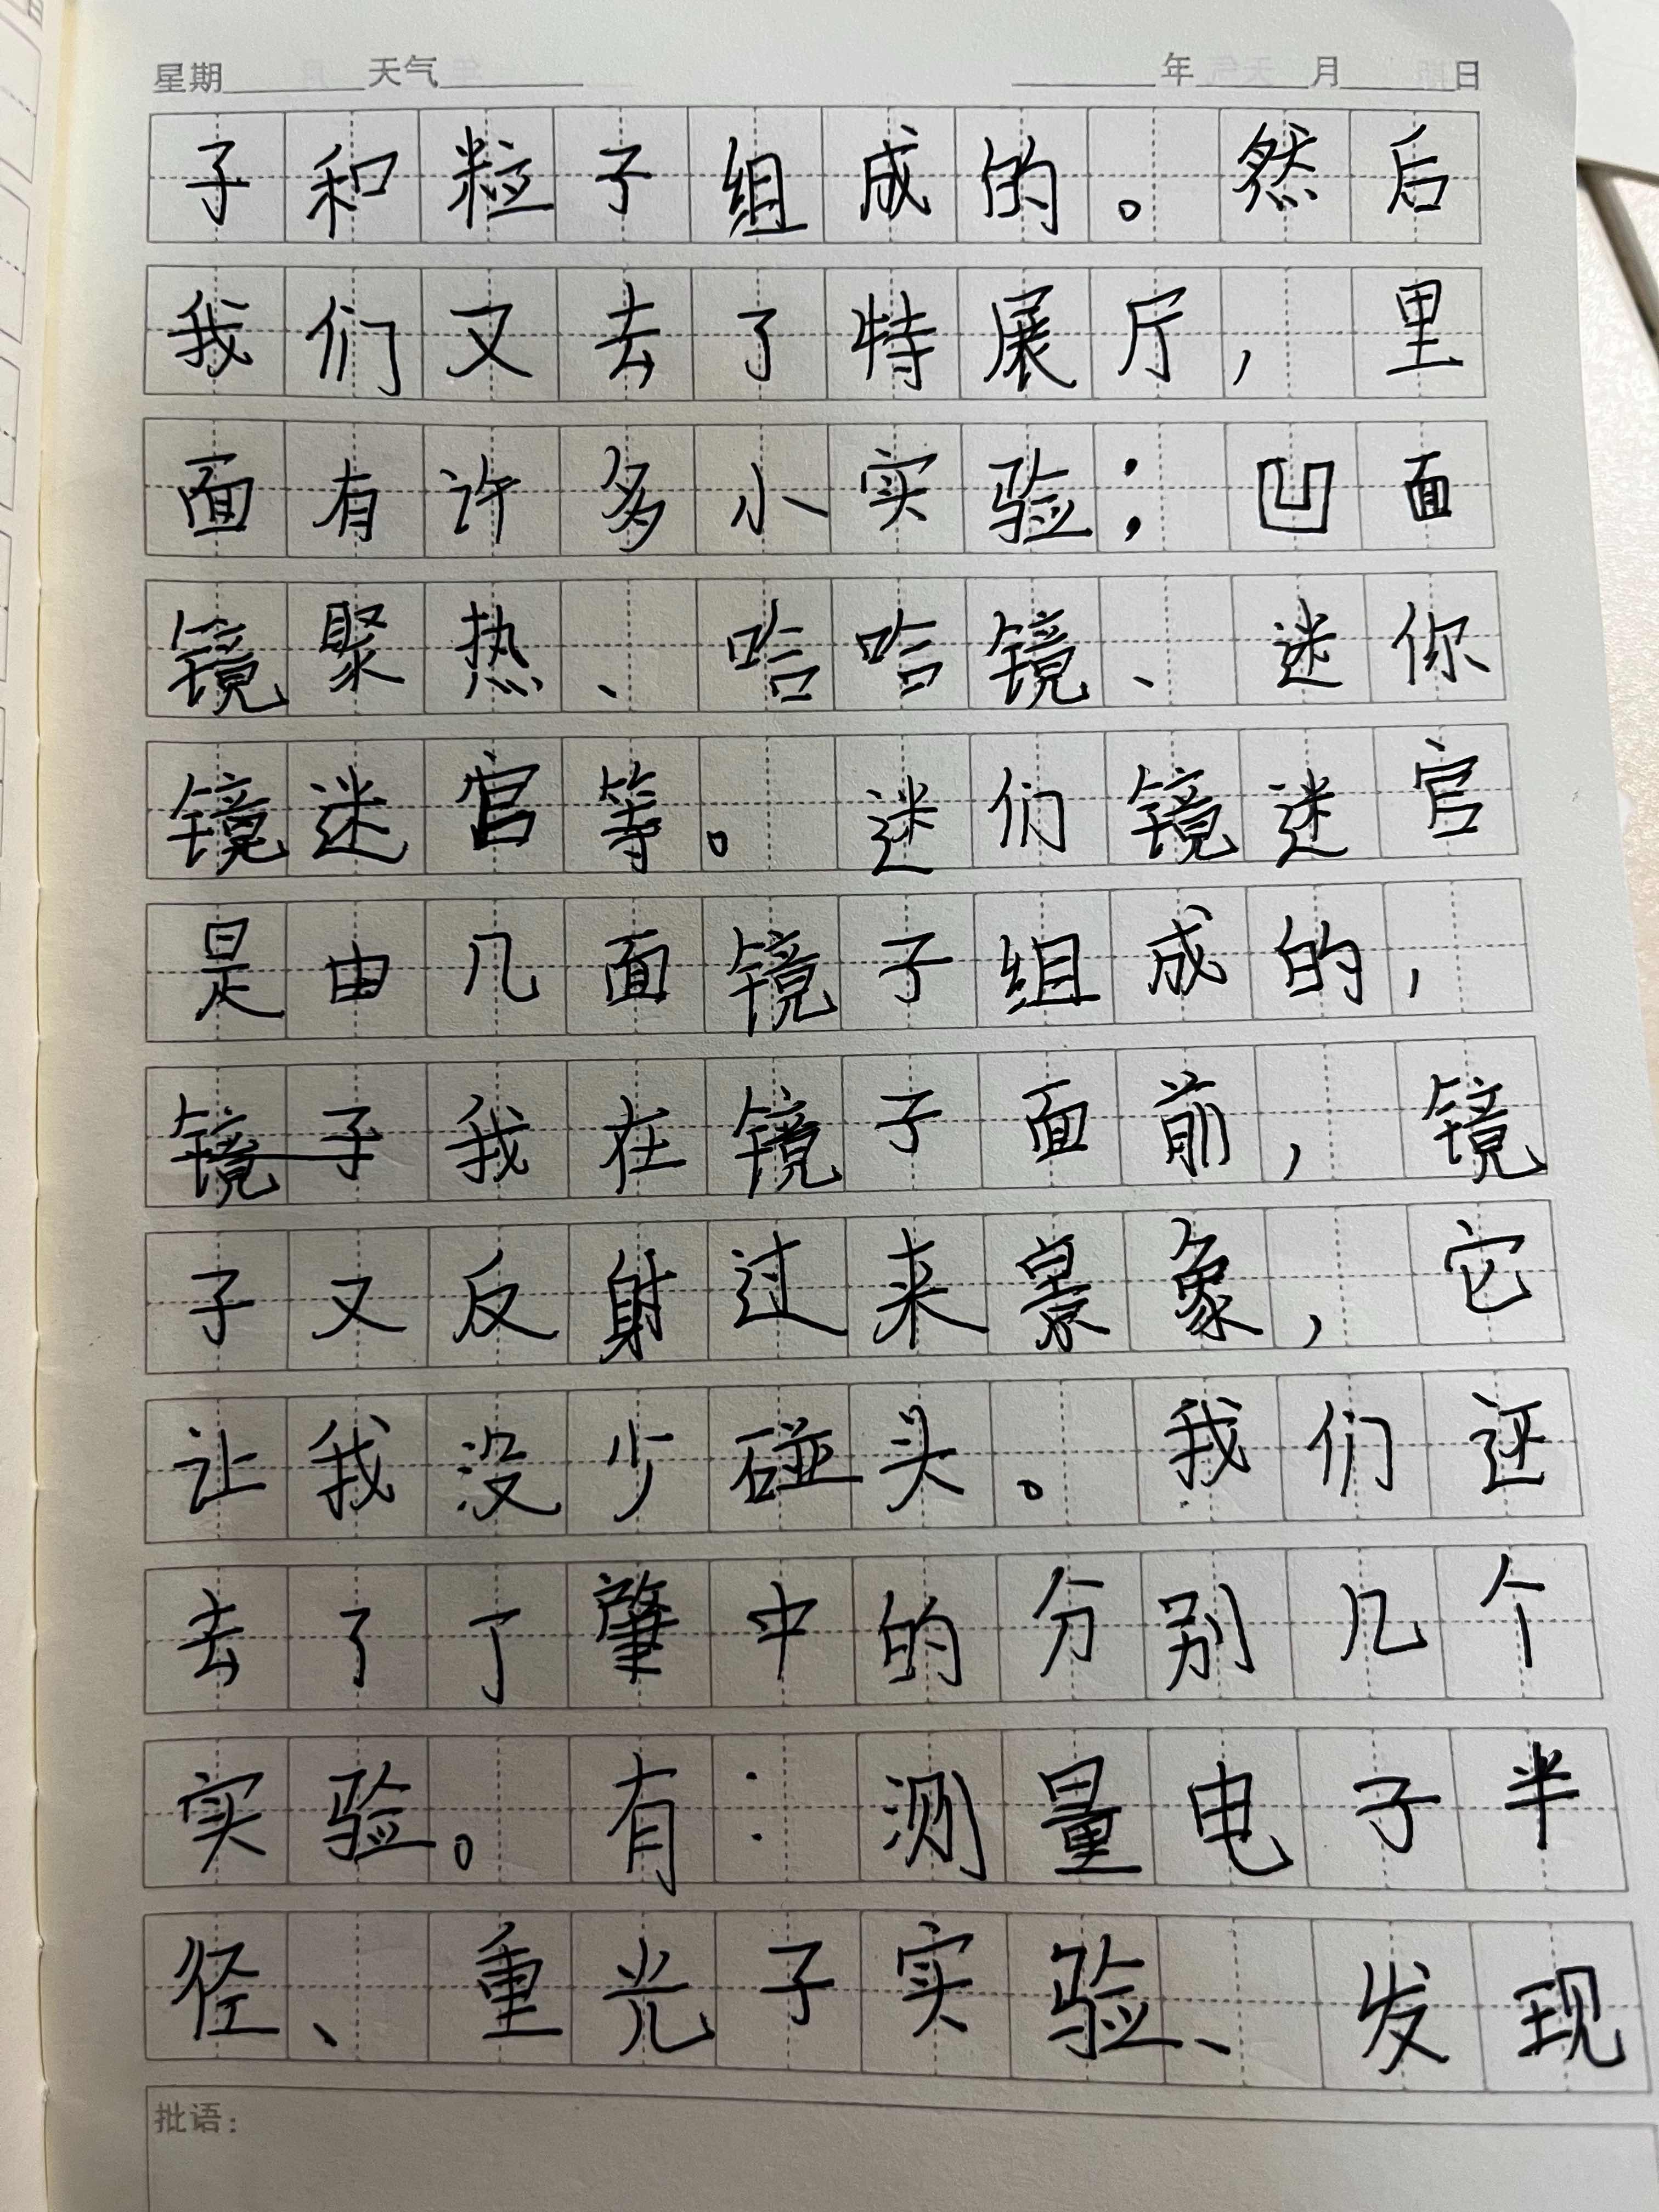 星期 天气 年 月 日
子和粒子组成的。然后
我们又去了特展厅，里
面有许多小实验；凹面
镜聚热、哈哈镜、迷你
镜迷官等。迷们镜迷官
是由几面镜子组成的，
镜子我在镜子面前，镜
子又反射过来景象，它
让我没少碰头。我们还
去了丁肇中的分别几个
实验。有：测量电子半
径、重光子实验、发现
批语：